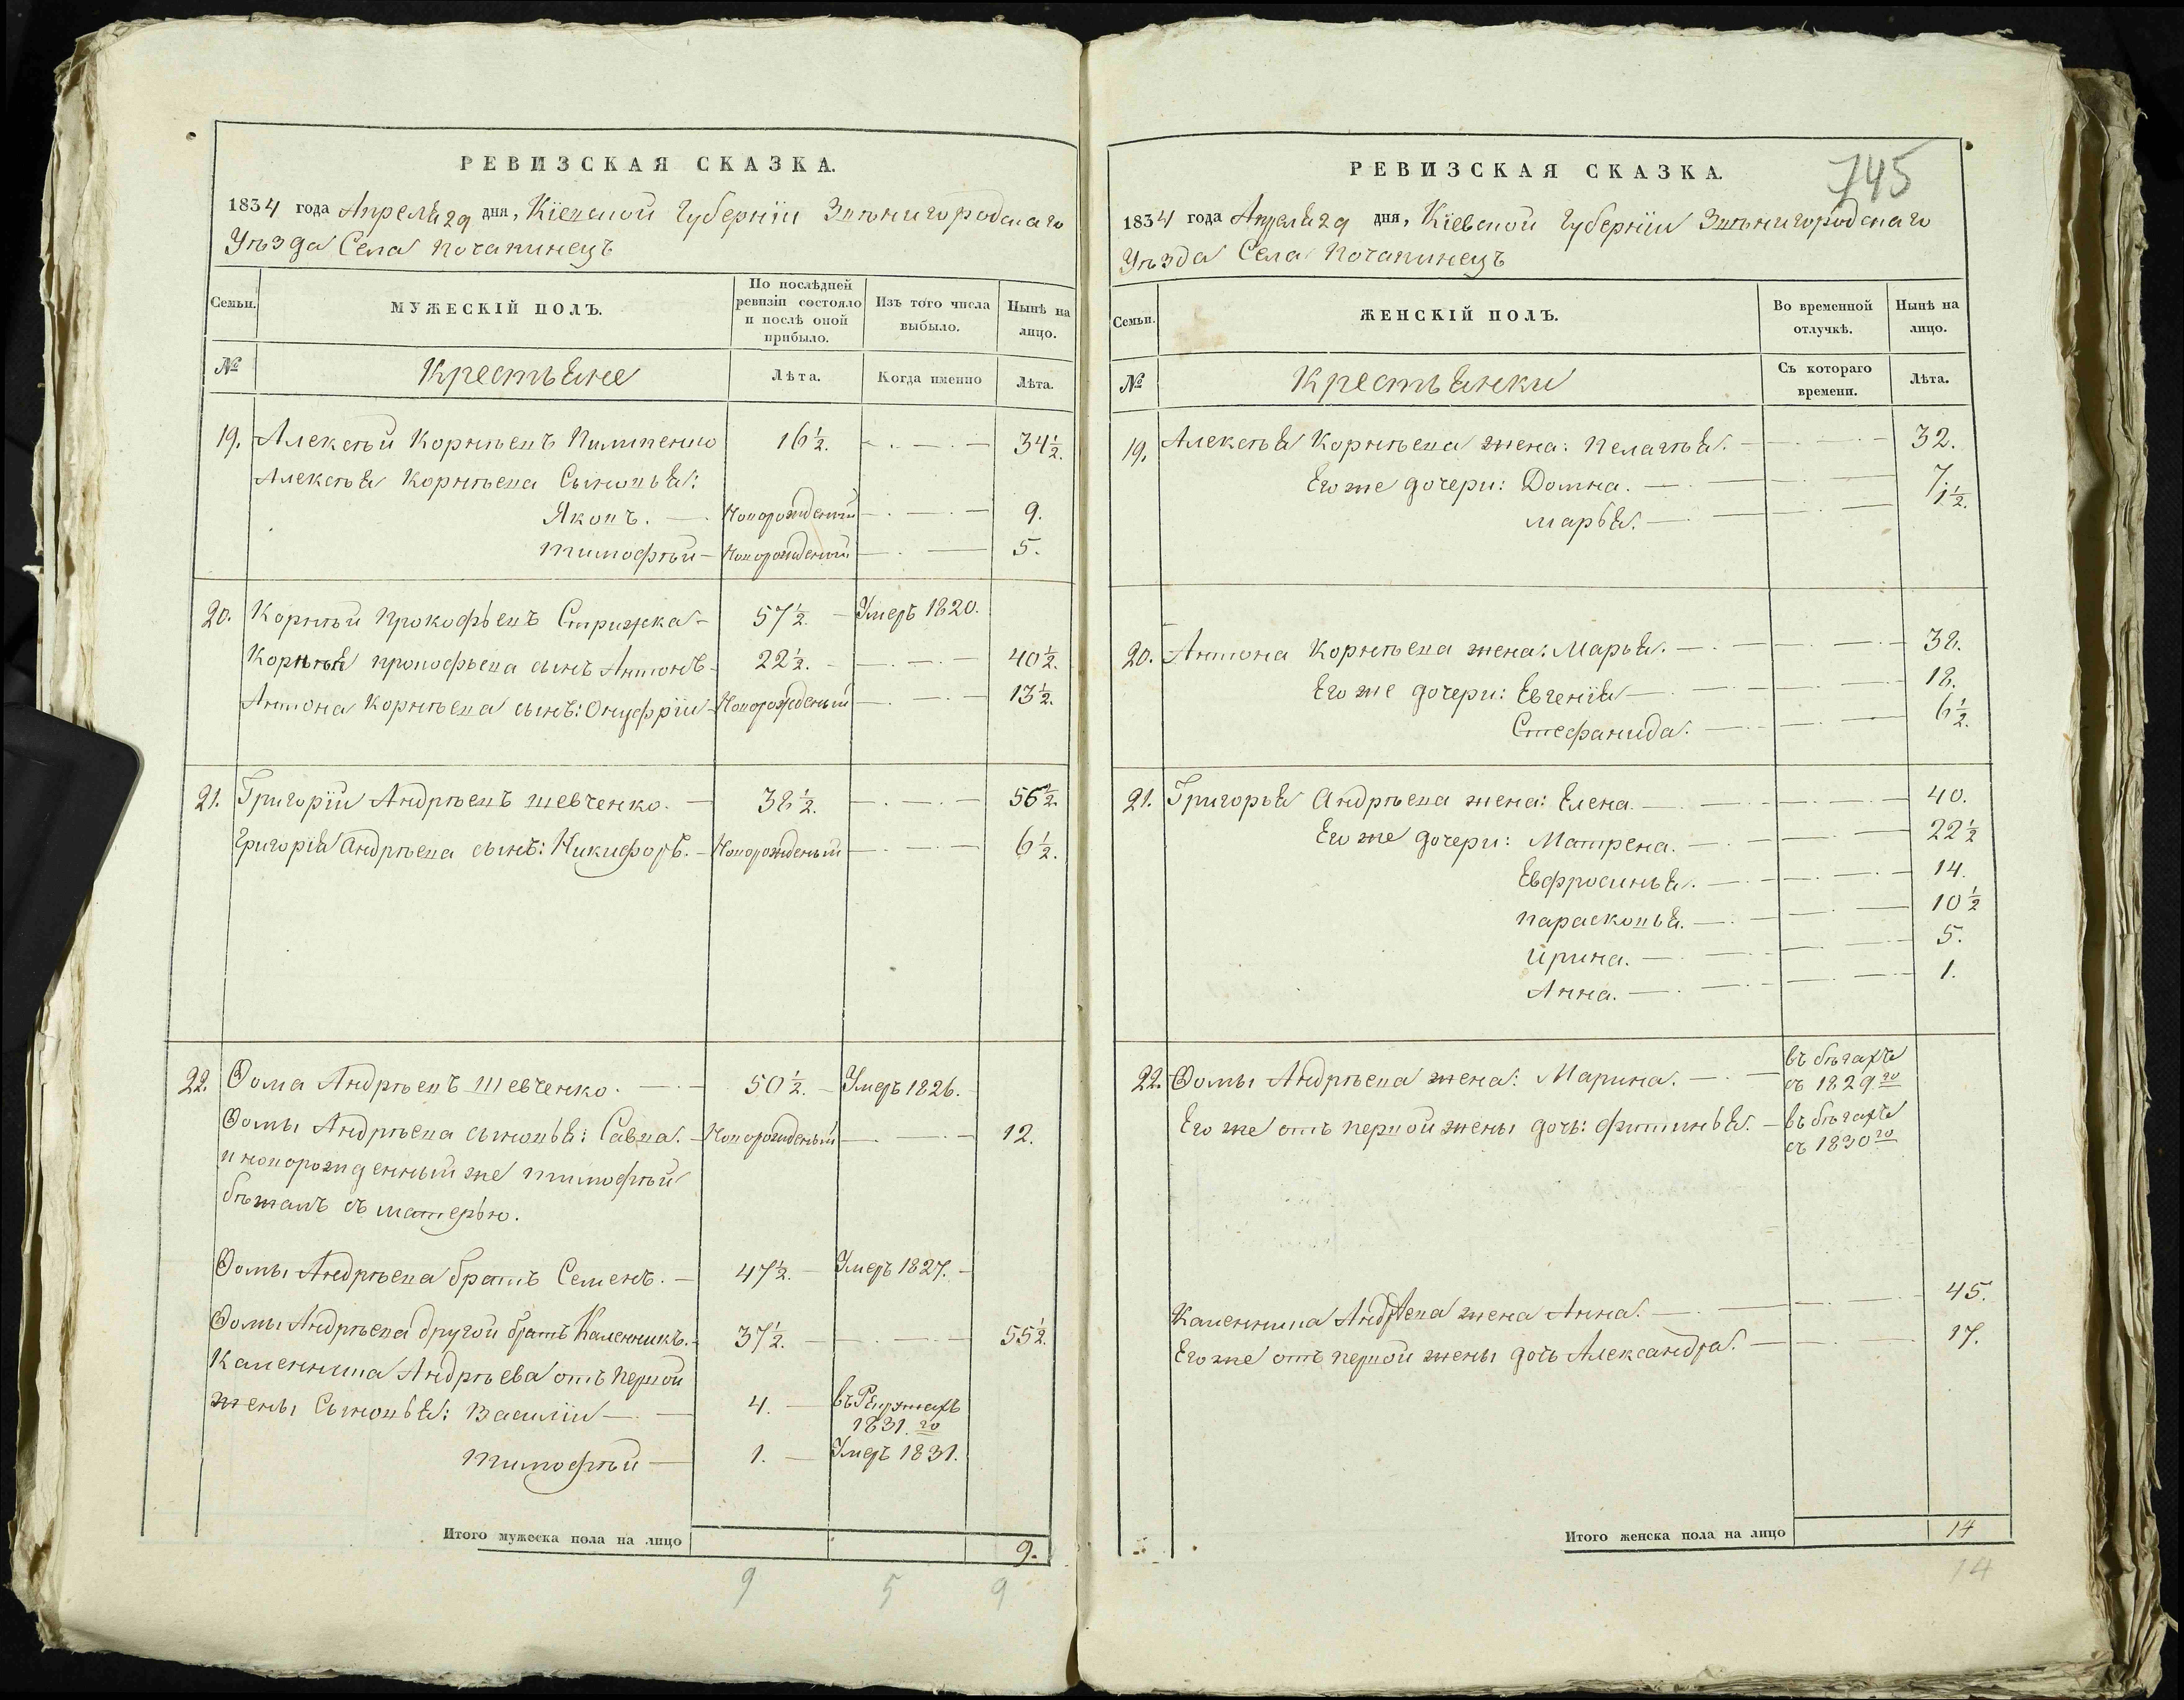 РЕВИЗСКАЯ СКАЗКА.
1834 года Апреля 29 дня, Кіевской Губерніи Звѣнигородскаго
Уѣзда Села Почапинецъ
Семьи.
МУЖЕСКІЙ ПОЛЪ.
По послѣдней ревизіи состояло и послѣ оной прибыло.
Изъ того числа выбыло.
Нынѣ на лицо.
№
Крестьяне
Лѣта.
Когда именно
Лѣта.
19. Алексѣй Корнѣевъ Пилипенко 16½. 34½.
Алексѣя Корнѣева Сыновья:
Яковъ. Новорожденый 9.
Тимофѣй Новорожденый 5.
20. Корнѣй Прокофьевъ Стрижка 57½. Умеръ 1820.
Корнѣя Прокофьева сынъ Антонъ 22½. 40½.
Антона Корнѣева сынъ: Онуфрій Новорожденый 13½.
21. Григорій Андрѣевъ Шевченко. 38½. 56½.
Григорія Андрѣева сынъ: Никифоръ. Новорожденый 6½.
22. Ѳома Андрѣевъ Шевченко. 50½. Умеръ 1826.
Ѳомы Андрѣева сыновья: Савва. Новорожденый 12.
и новорожденный же Тимофѣй
бѣжалъ съ матерью.
Ѳомы Андрѣева братъ Семенъ. 47½. Умеръ 1827.
Ѳомы Андрѣева другой братъ Каленникъ. 37½. 55½.
Каленника Андрѣева отъ первой
жены Сыновья: Василій 4. въ Рекрутахъ
1831.го
Тимофѣй 1. Умеръ 1831.
Итого мужеска пола на лицо 9.
9 5 9
РЕВИЗСКАЯ СКАЗКА.
745
1834 года Апреля 29 дня, Кіевской Губерніи Звѣнигородскаго
Уѣзда Села Почапинецъ
Семьи.
ЖЕНСКІЙ ПОЛЪ.
Во временной отлучкѣ.
Нынѣ на лицо.
№
Крестьянки
Съ котораго времени.
Лѣта.
19. Алексѣя Корнѣева жена: Пелагѣя. 32.
Его же дочери: Домна. 7
Марья. 1½.
20. Антона Корнѣева жена: Марья. 38.
Его же дочери: Евгенія 18.
Стефанида. 6½.
21. Григорья Андрѣева жена: Елена. 40.
Его же дочери: Матрена. 22½
Евфросинья. 14.
Парасковья. 10½
Ирина. 5.
Анна. 1.
22. Ѳомы Андрѣева жена: Марина. въ бѣгахъ
съ 1829го
Его же отъ первой жены дочь: Фитинья. въ бѣгахъ
съ 1830го
Каленника Андрѣева жена Анна. 45.
Его же отъ первой жены дочь Александра. 17.
Итого женска пола на лицо 14
14